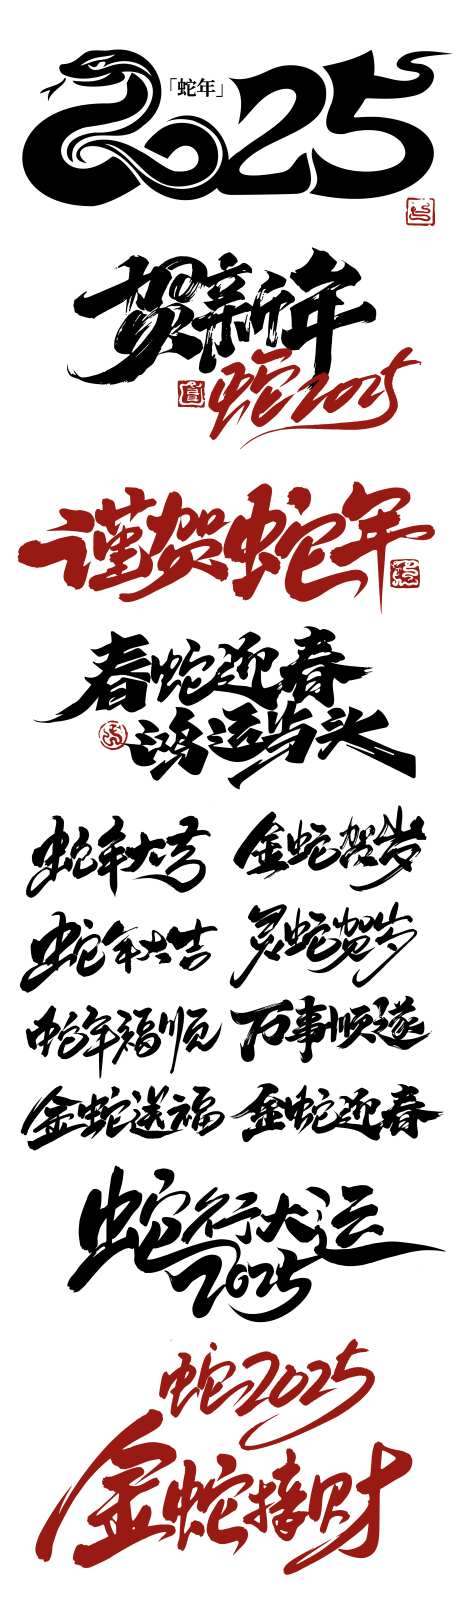 2025
「蛇年」
贺新年
蛇2025
谨贺蛇年
春蛇迎春
鸿运当头
蛇年大吉
金蛇贺岁
蛇年大吉
灵蛇贺岁
蛇年福顺
万事顺遂
金蛇送福
金蛇迎春
蛇行大运
2025
蛇2025
金蛇接财